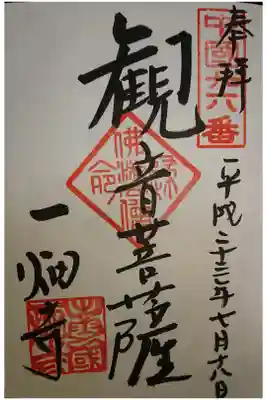 奉拝
中國廿六番
平成二十三年七月
観音菩薩
一畑寺